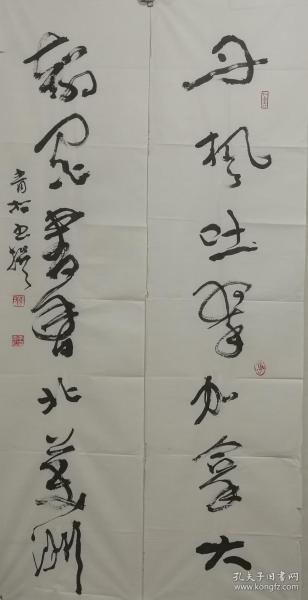 丹枫吐翠加拿大
翰墨书香北美洲
青松書撰
孔夫子旧书网